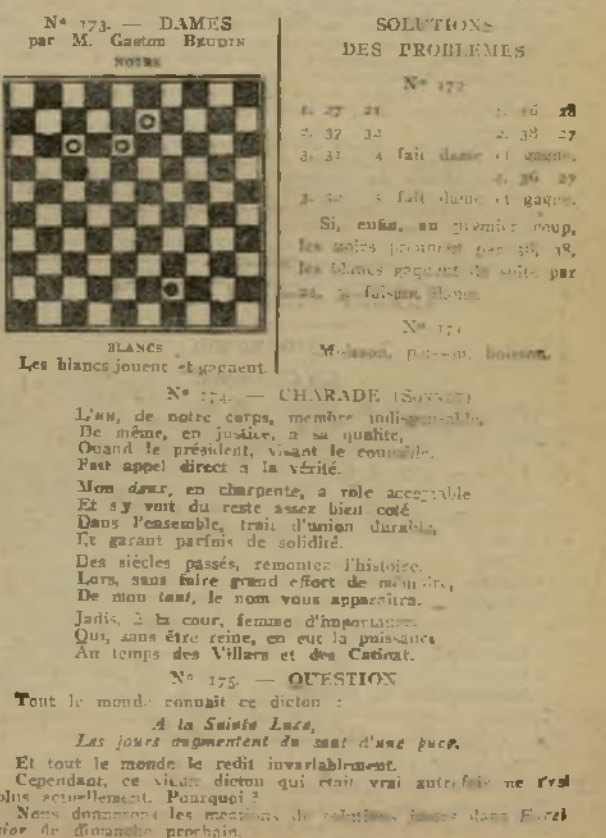 N° 173. — DAMES
par M. Gaston BEUDIN
NOIRS
BLANCS
Les blancs jouent et gagnent.
SOLUTIONS
DES PROBLEMES
N° 172
1. 27 21 1. 16 18
2. 37 32 2. 38 27
3. 31 4 fait dame et gagne.
2. 36 27
3. 5 fait dame et gagne.
Si, enfin, au premier coup,
les noirs prennent par 18,
les blancs gagnent de suite par
faisant dame.
N° 171
Moisson, boisson.
N° 174. — CHARADE (SONNET)
L'un, de notre corps, membre indispensable,
De même, en justice, a sa qualité,
Quand le président, visant le coupable,
Fait appel direct a la vérité.
Mon deux, en charpente, a role acceptable
Et s'y voit du reste assez bien coté
Dans l'ensemble, trait d'union durable,
Et garant parfois de solidité.
Des siècles passés, remontez l'histoire.
Lors, sans faire grand effort de mémoire,
De mon tout, le nom vous apparaitra.
Jadis, à la cour, femme d'importance
Qui, sans être reine, en eut la puissance
Au temps des Villars et des Catinat.
N° 175. — QUESTION
Tout le monde connait ce dicton :
A la Sainte Luce,
Les jours augmentent du saut d'une puce.
Et tout le monde le redit invariablement.
Cependant, ce vieux dicton qui était vrai autrefois ne l'est
plus actuellement. Pourquoi ?
Nous donnerons les mentions de solutions justes dans
de dimanche prochain.